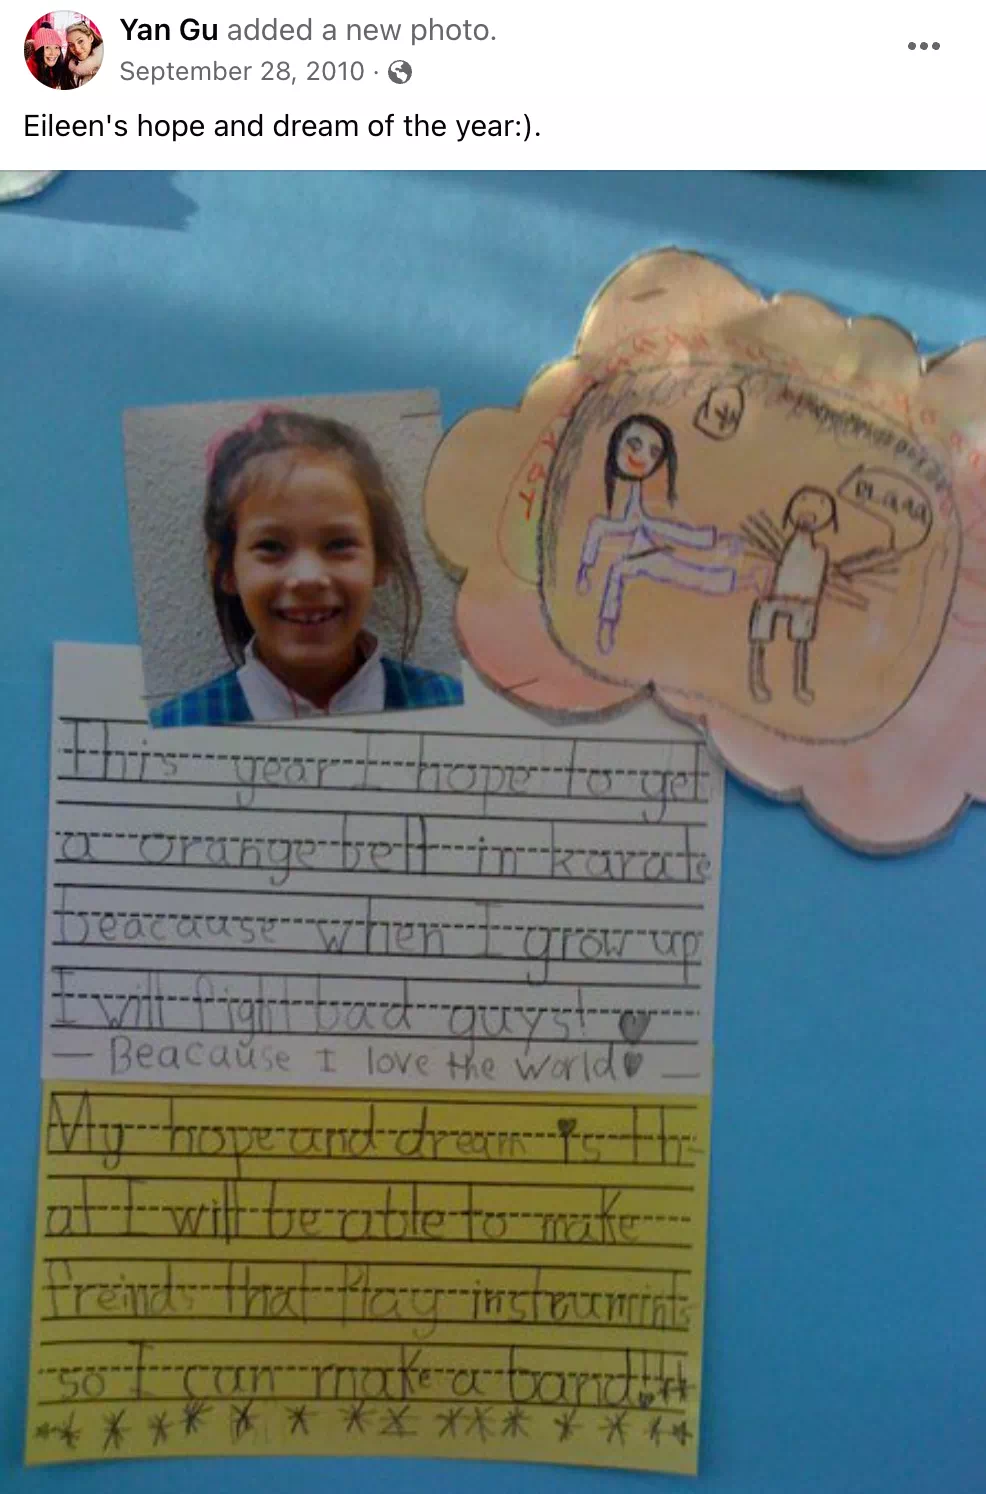 Yan Gu added a new photo.
September 28, 2010 ·
Eileen's hope and dream of the year:).
BLaaa
This year I hope to get
a orange belt in karate
beacause when I grow up
I will fight bad guys! ♥
— Beacause I love the world♥ —
My hope and dream is th-
at I will be able to make
freinds that play instrumints
so I can make a band!!